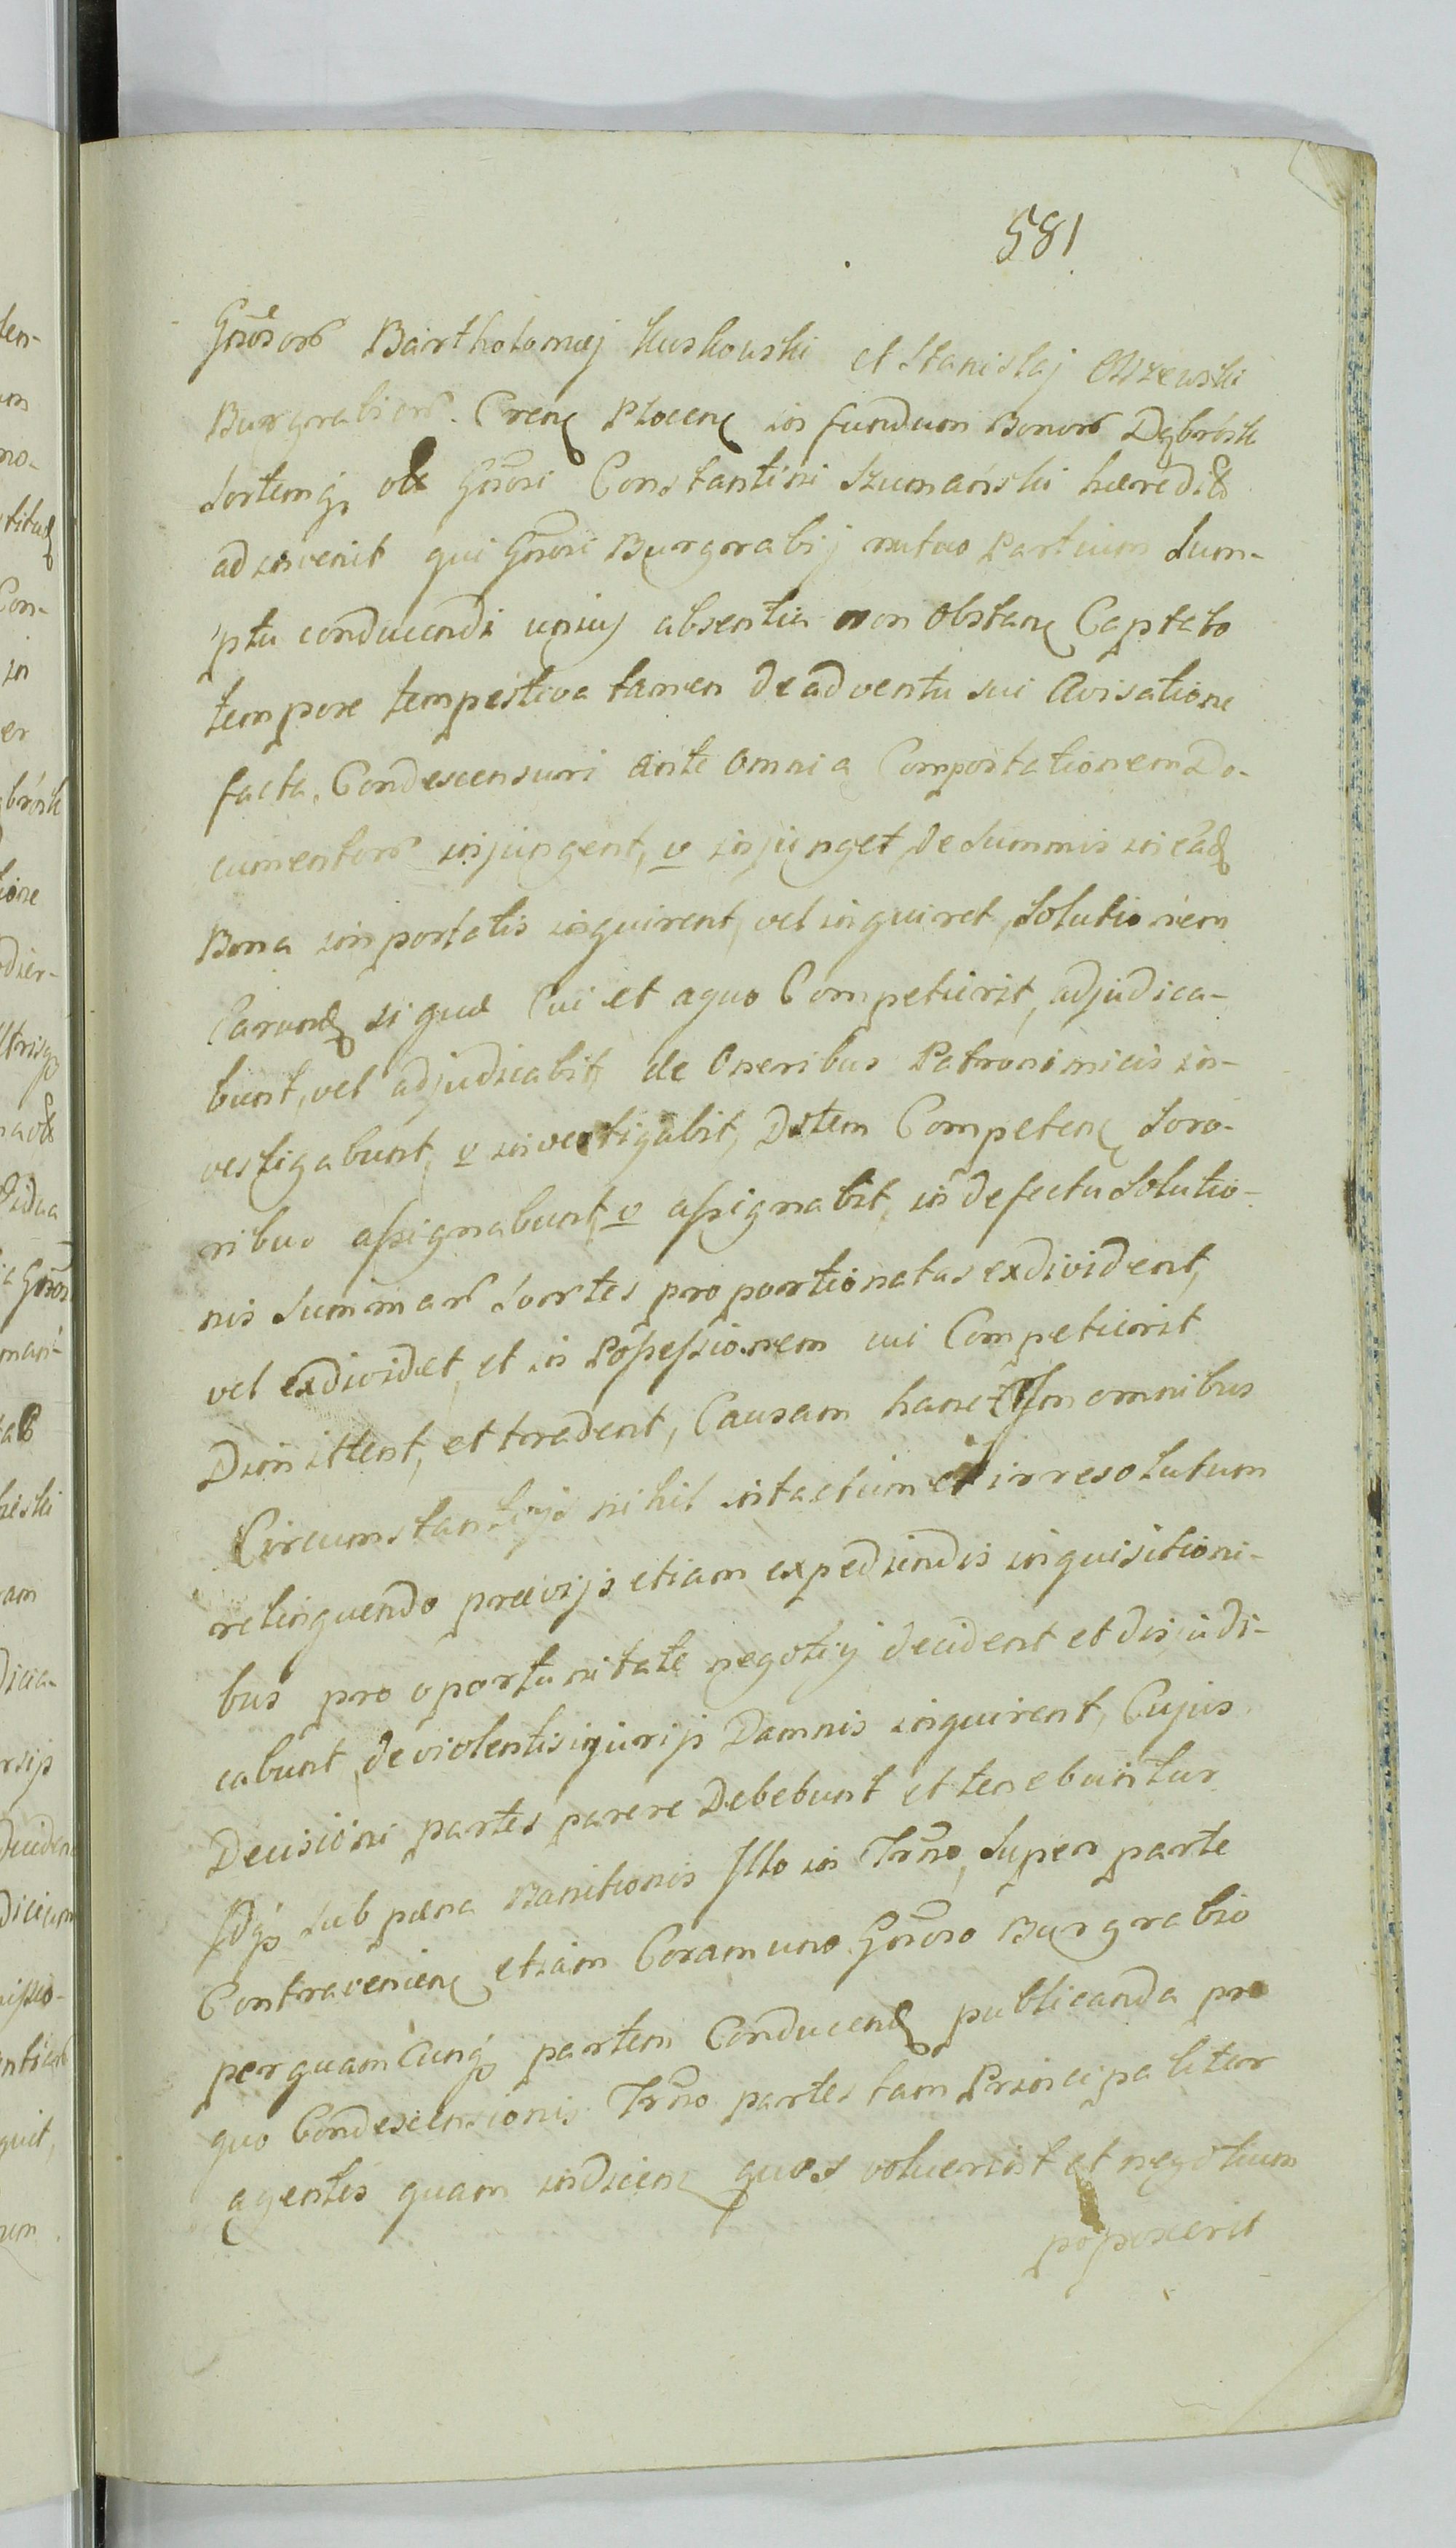 581
Gnõsorũ Bartholomæj Kuskowski et Stanislaj Olszewski
Burgrabiorũ. Crenę Płocenę in fundum Bonorũ Dębrósk
Sortemq, olĩ Gnõsi Constantini Szumański hæreditũ
ad invenit qui Gnõsi Burgrabij mutuo Partium Sum-
ptu conducendi unius absentia non obstanę Captato
tempore tempestiva tamen de adventu sui Avisatione
facta, Condescensuri ante omnia Comportationem Do-
cumentorũ injungent, v injunget, de Summis in eadę
Bona importatis inquirent, vel inquiret, Solutionem
Earundę si quæ Cui et aquo Competierit, adjudica-
bunt, vel adjudicabit, de Oneribus Patronimicis in-
vestigabunt, v investigabit, Dotem Competenę Soro-
ribus assignabunt, v assignabit, in defectu Solutio-
nis Summarũ Sortes proportionatas exdivident,
vel exdividet, et in Possessionem cui Competierit
Dimittent, et tradent, Causam hanc in omnibus
Circumstantijs nihil intactum et irresolutum
relinquendo prævijs etiam expediendis inquisitioni-
bus pro oportunitate negotij decident et dijudi-
cabunt, de violentis injurijs Damnis inquirent, Cujus
Decisioni partes parere Debebunt et tenebuntur
Idq, sub pæna Banitionis Illo in Trño, Super parte
Contravenienę etiam Coram uno Gnõso Burgrabio
per quamcunq, partem Conducendę publicanda pro
quo Condescensionis Trño partes tam Principaliter
agentes quam indicenę quos voluerint et negotium
poposcerit